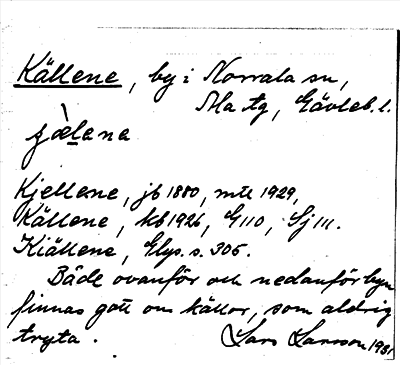 Källene, by i Norrala sn,
Ala tg, Gävleb. l.
jæ̀lena
Kjellene, jb 1880, mtl 1929,
Källene, kb 1926, G 110, Sj 111.
Kiällene, Glys. s. 305.
Både ovanför och nedanför byn
finnas gott om källor, som aldrig
tryta. Lars Larsson 1931